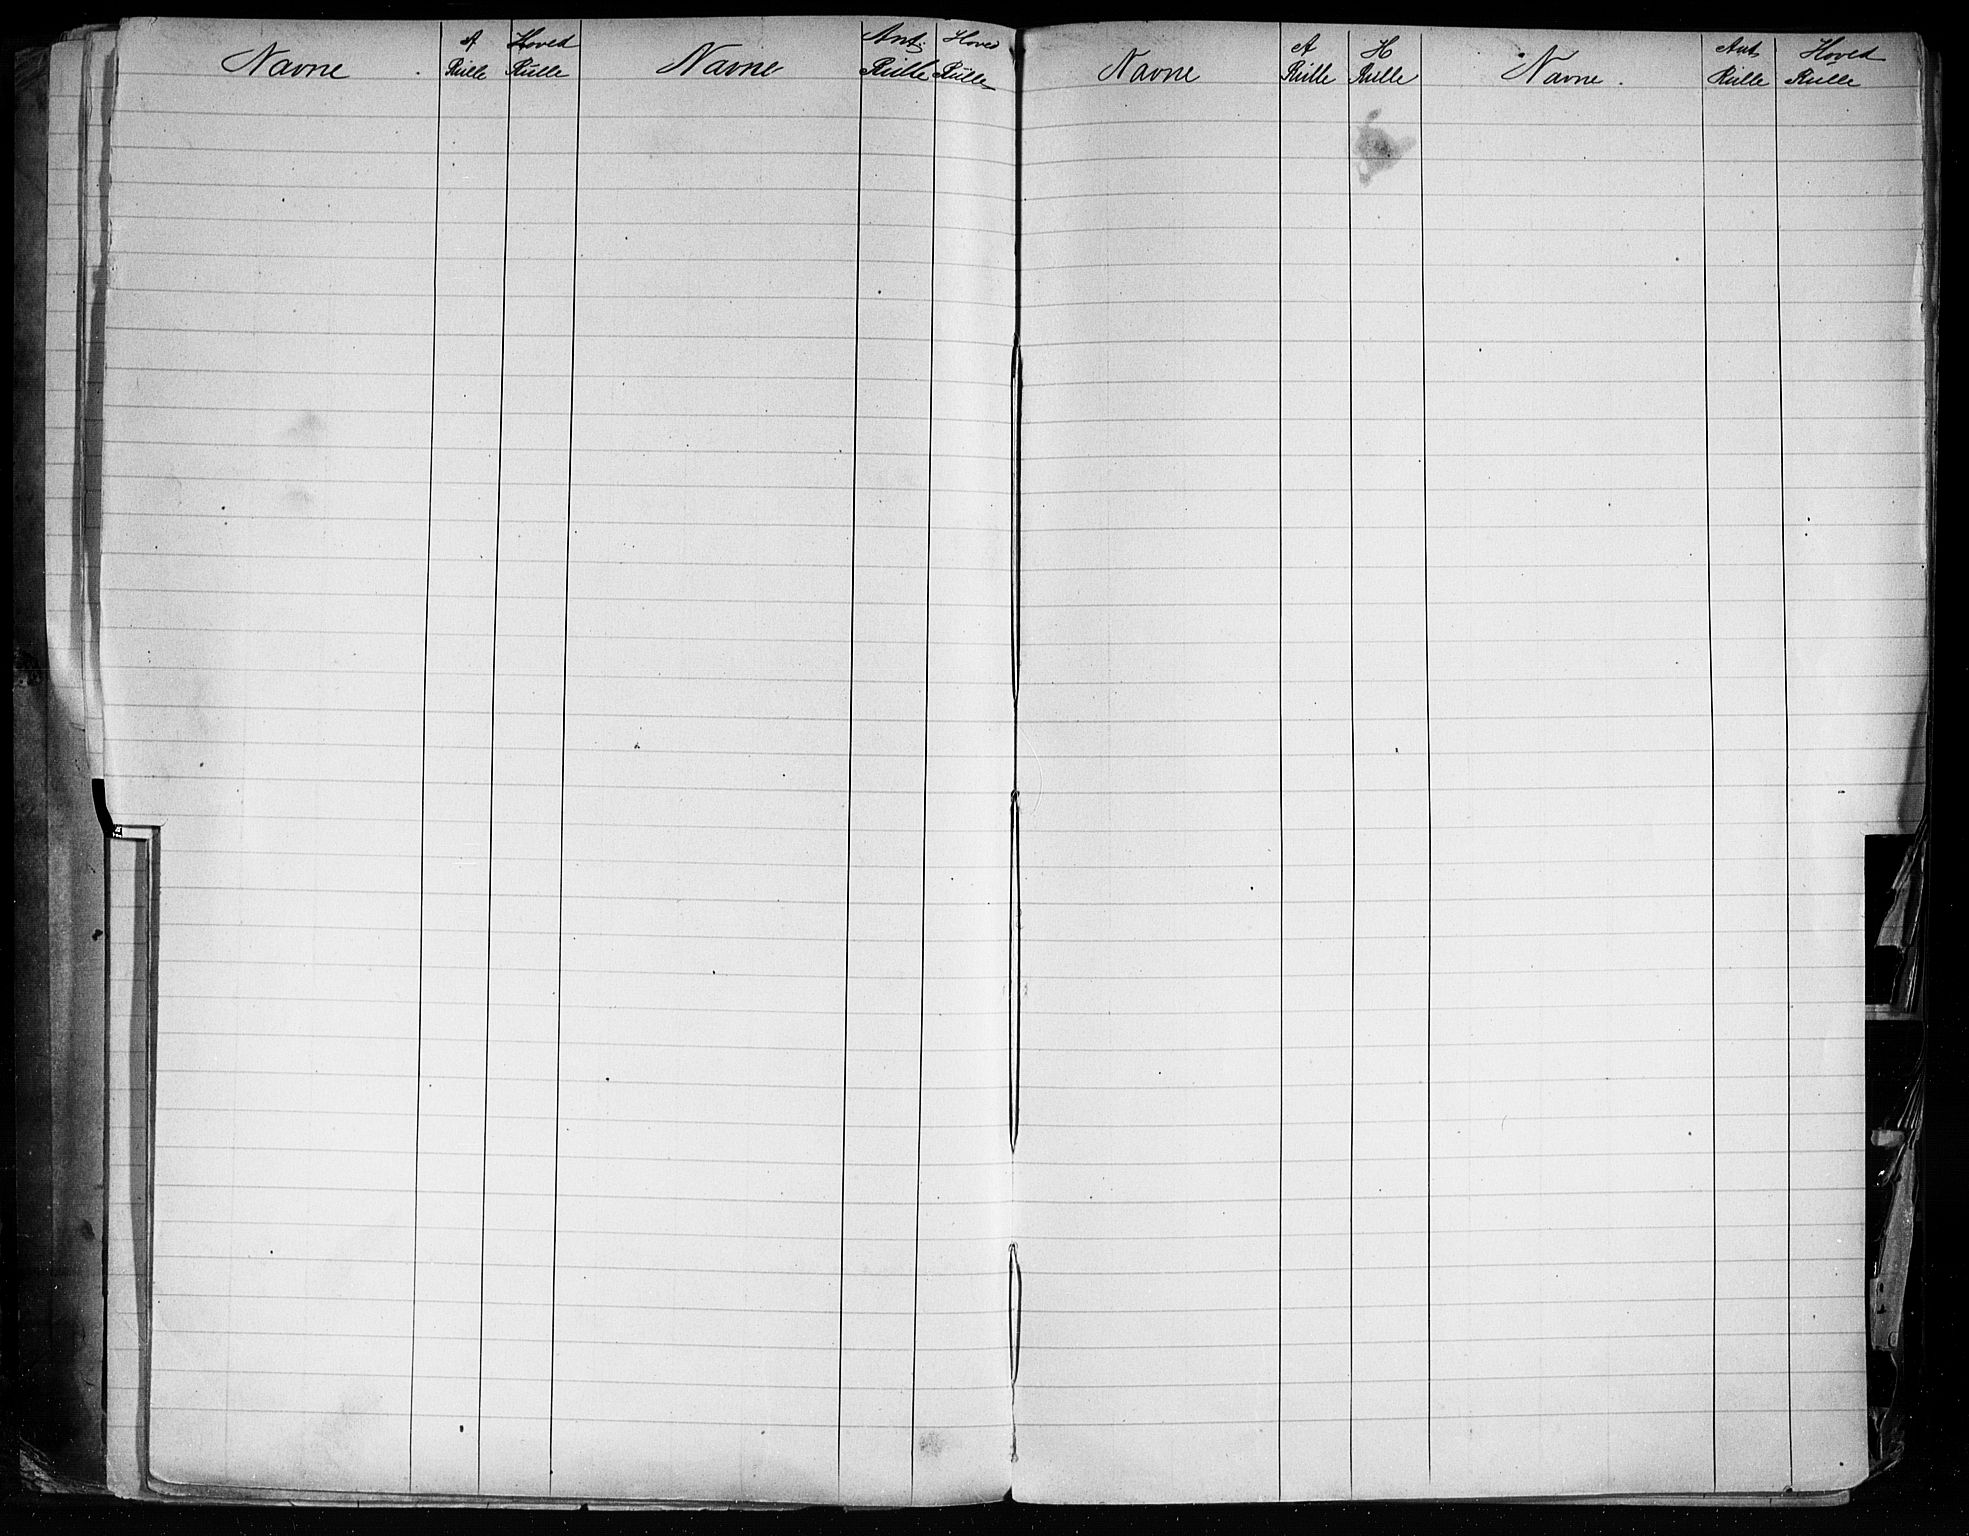 Navne A Rulle Hoved Rulle Navne Ant. Rulle Hoved Rulle
Navne A Rulle H Rulle Navne. Ant. Rulle Hoved Rulle